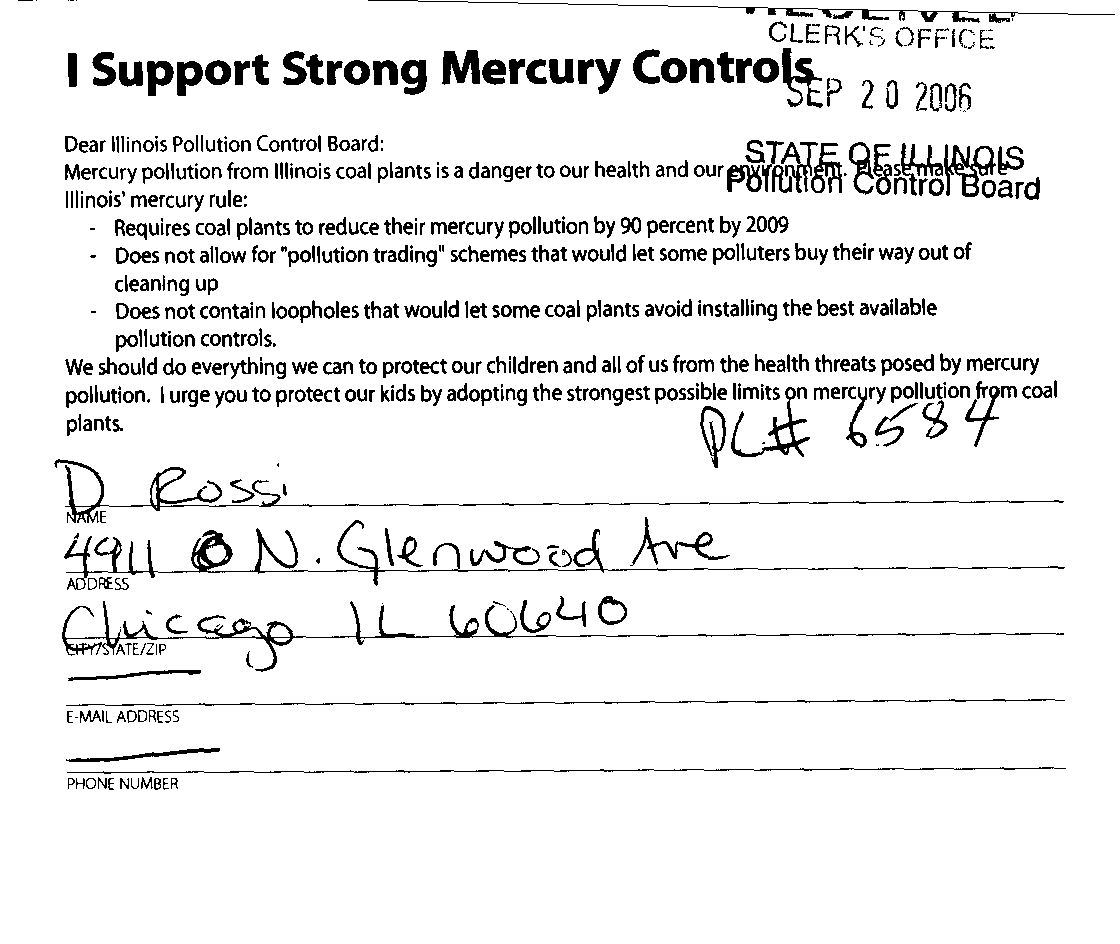 RECEIVED
CLERK'S OFFICE
I Support Strong Mercury Controls
SEP 20 2006
Dear Illinois Pollution Control Board:
STATE OF ILLINOIS
Mercury pollution from Illinois coal plants is a danger to our health and our environment. Please make sure
Pollution Control Board
Illinois' mercury rule:
- Requires coal plants to reduce their mercury pollution by 90 percent by 2009
- Does not allow for "pollution trading" schemes that would let some polluters buy their way out of
cleaning up
- Does not contain loopholes that would let some coal plants avoid installing the best available
pollution controls.
We should do everything we can to protect our children and all of us from the health threats posed by mercury
pollution. I urge you to protect our kids by adopting the strongest possible limits on mercury pollution from coal
plants.
PC# 6584
D Rossi
NAME
4911 N. Glenwood Ave
ADDRESS
Chicago IL 60640
CITY/STATE/ZIP
E-MAIL ADDRESS
PHONE NUMBER